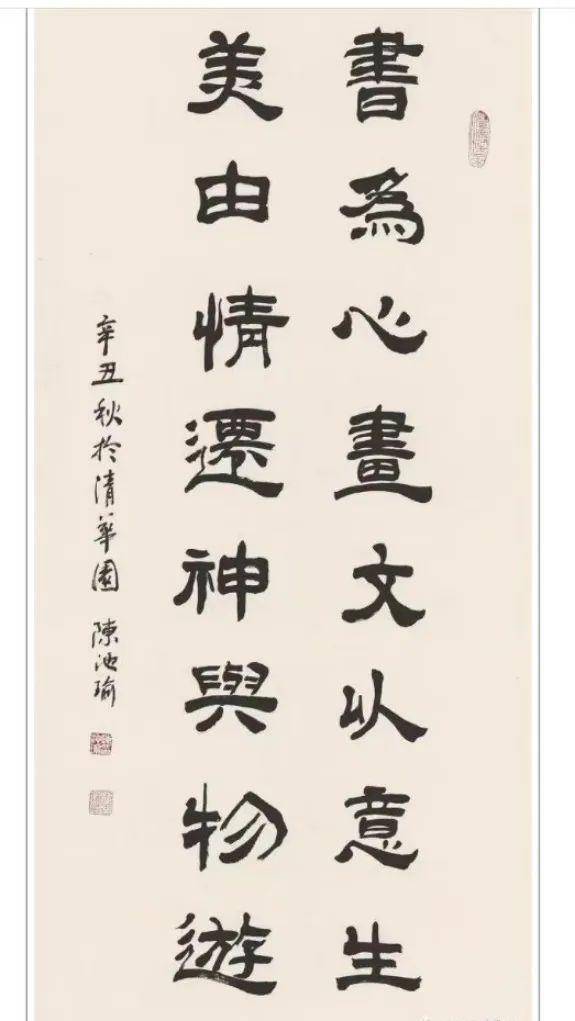 書為心畫文以意生
美由情遷神與物遊
辛丑秋於清華園 陳池瑜